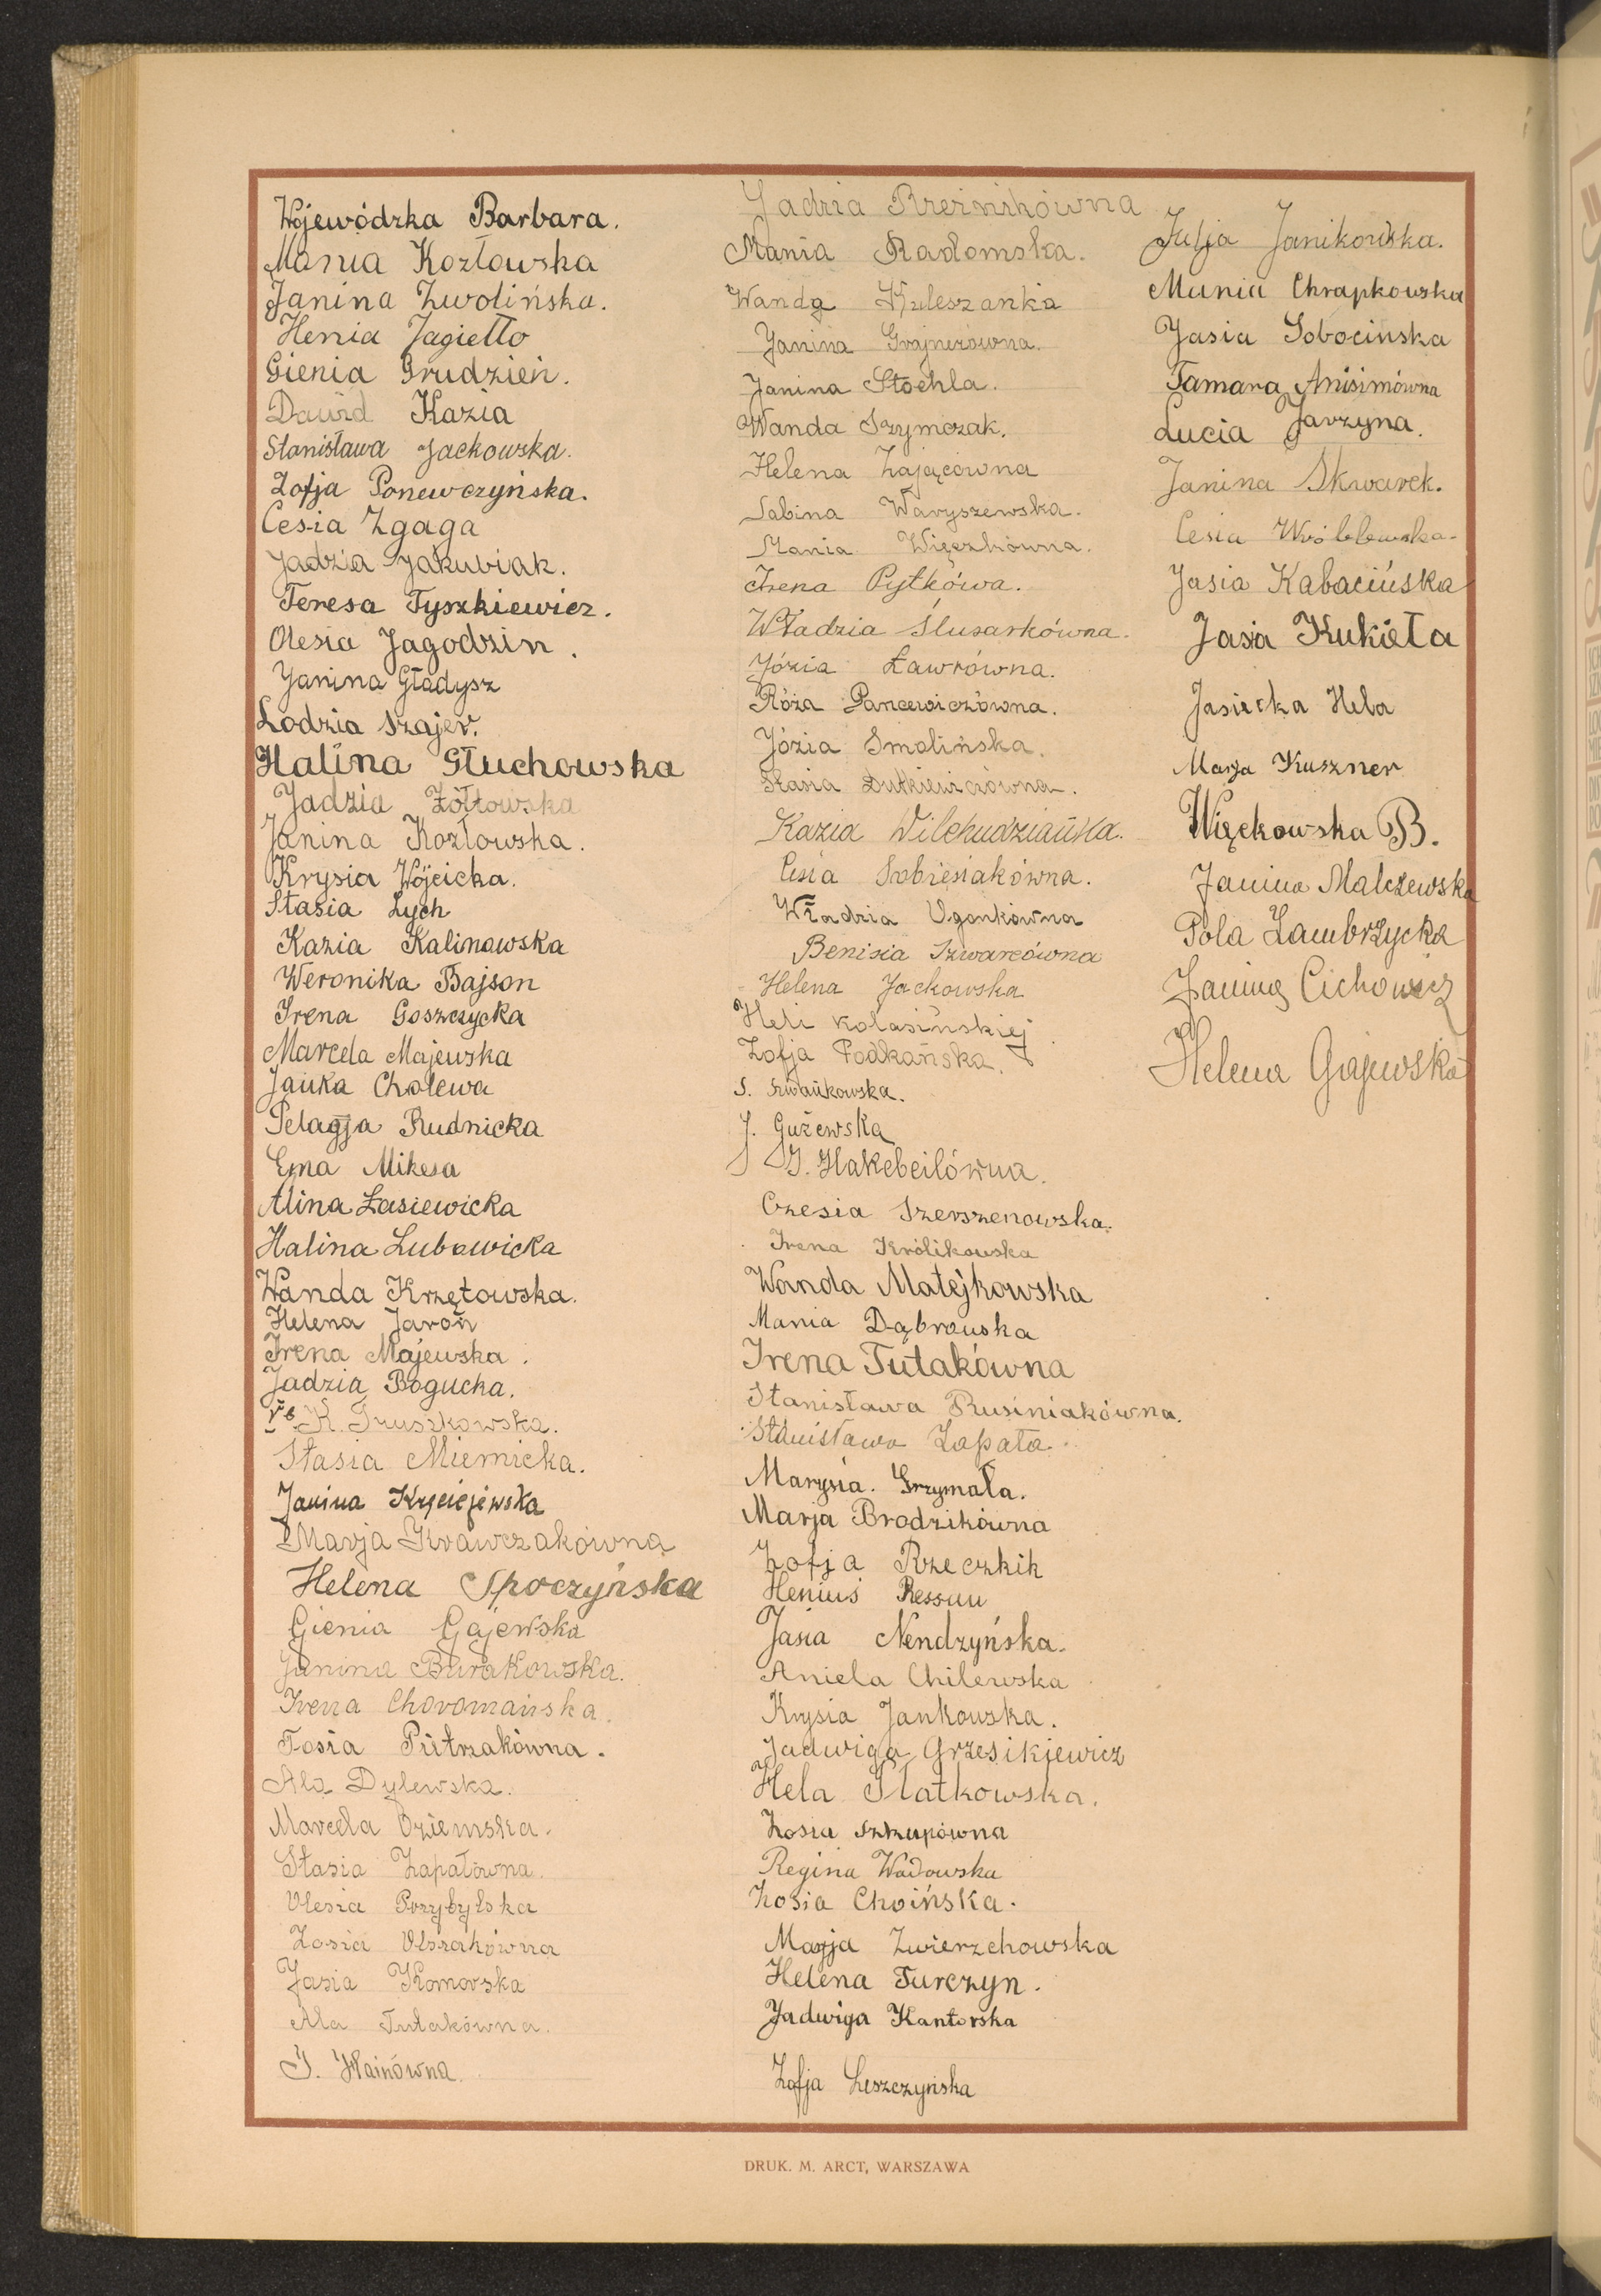 Wojewódzka Barbara.
Mania Kozłowska
Janina Zwolińska.
Henia Jagiełło
Gienia Grudzień.
Dawid Kazia
Stanisława Jackowska.
Zofja Ponewczyńska.
Cesia Zgaga
Jadzia Jakubiak.
Teresa Tyszkiewicz.
Olesia Jagodzin.
Janina Gładysz
Lodzia Szajer.
Halina Głuchowska
Jadzia Żółtowska
Janina Kozłowska.
Krysia Wójcicka.
Stasia Lych
Kazia Kalinowska
Weronika Bajson
Irena Goszczycka
Marcela Majewska
Janka Cholewa
Pelagja Rudnicka
Ema Mikesa
Alina Łasiewicka
Halina Lubowicka
Wanda Krzętowska.
Helena Jaroń
Irena Majewska.
Jadzia Bogucka.
K. Gruszkowska.
Stasia Miernicka.
Janina
Marja Krawczakówna
Helena Spoczyńska
Gienia Gajewska
Janina Burakowska.
Irena Choromańska.
Tosia Pietrzakówna.
Ala Dylewska.
Marcela Oziemska.
Stasia Zapałówna.
Olesia Przybylska
Zosia Olszakówna
Jasia Komorska
Ala Tutakówna.
J. Hainówna.
Jadzia Rzeźnikówna
Mania Radomska.
Wanda Kuleszanka
Janina Grajnerówna.
Janina Stoehla.
Wanda Szymczak.
Helena Zającówna
Sabina Waryszewska.
Mania Więczkówna.
Irena Pytkówa.
Władzia Ślusarkówna.
Józia Ławrówna.
Róża Pancewiczówna.
Józia Smolińska.
Stasia Dutkiewiczówna.
Kazia Wilchudziańka.
Cesia Sobiesiakówna.
Władzia Ogonkówna
Benisia Szwarcówna
Helena Jackowska
Heli Kolasińskiej
Zofja Podkańska.
S. Szwankowska.
J. Gużewska
J. Hakebeilówna.
Czesia Szerszenowska.
Irena Królikowska
Wanda Matejkowska
Mania Dąbrowska
Irena Tutakówna
Stanisława Rusiniakówna.
Stanisława Zapała.
Marysia. Grzymała.
Marja Brodzikówna
Zofja Rzeczkik
Heniuś
Jasia Nendzyńska.
Aniela Chilewska
Krysia Jankowska.
Jadwiga Grzesikiewicz
Hela Slatkowska.
Zosia Szkupówna
Regina Wadowska
Zosia Choińska.
Marja Zwierzchowska
Helena Turczyn.
Jadwiga Kantorska
Zofja Leszczyńska
Julja Janikowska.
Mania Chrapkowska
Jasia Sobocinska
Tamara Anisimówna
Lucia Jarzyna.
Janina Skwarek.
Cesia Wróblewska.
Jasia Kabacińska
Jasia Kukieła
Jasiecka Hela
Marja Kuszner
Więckowska B.
Janina Malczewska
Pola Zambrzycka
Janina Cichowicz
Helena Gajewska
DRUK. M. ARCT, WARSZAWA